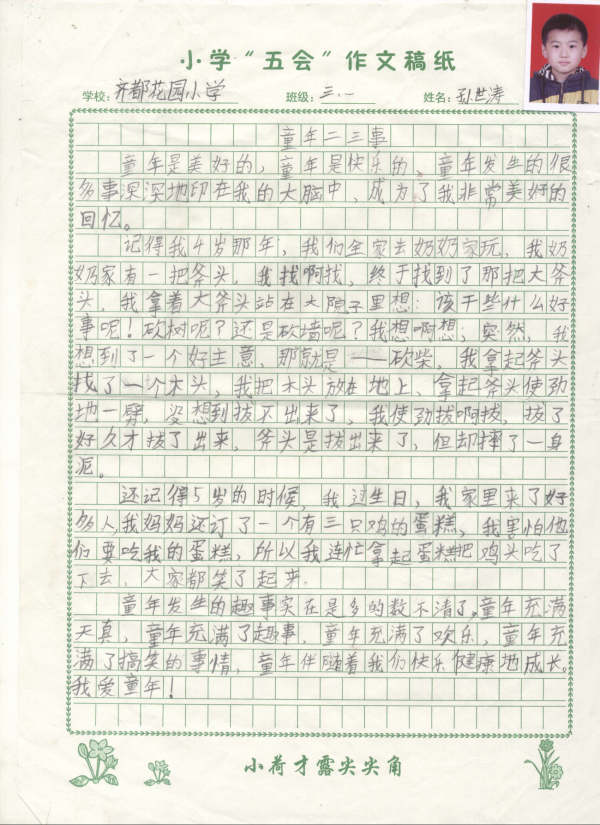 小学“五会”作文稿纸
学校: 齐都花园小学 班级: 三.一 姓名: 孙世涛
童年二三事
童年是美好的，童年是快乐的、童年发生的很
多事深深地印在我的大脑中，成为了我非常美好的
回忆。
记得我4岁那年，我们全家去奶奶家玩，我奶
奶家有一把斧头，我找啊找，终于找到了那把大斧
头，我拿着大斧头站在大院子里想：该干些什么好
事呢！砍树呢？还是砍墙呢？我想啊想；突然，我
想到了一个好主意，那就是——砍柴，我拿起斧头
找了一个木头，我把木头放在地上、拿起斧头使劲
地一劈，没想到拔不出来了，我使劲拔啊拔，拔了
好久才拔了出来，斧头是拔出来了，但却摔了一身
泥。
还记得5岁的时候，我过生日，我家里来了好
多人我妈妈还订了一个有三只鸡的蛋糕，我害怕他
们要吃我的蛋糕，所以我连忙拿起蛋糕把鸡头吃了
下去，大家都笑了起来.
童年发生的趣事实在是多的数不清了，童年充满
天真，童年充满了趣事，童年充满了欢乐，童年充
满了搞笑的事情，童年伴随着我们快乐健康地成长。
我爱童年！
小荷才露尖尖角